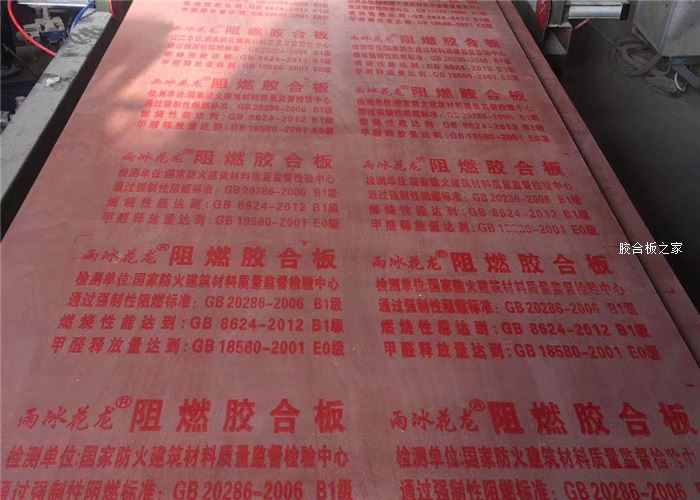 阻燃胶合板
检测单位:国家防火建筑材料质量监督检验中心
通过强制性阻燃标准: GB 20286-2006 B1级
燃烧性能达到: GB 8624-2012 B1级
甲醛释放量达到: GB 18580-2001 E0级
阻燃胶合板
检测单位:国家防火建筑材料质量监督检验中心
通过强制性阻燃标准: GB 20286-2006 B1级
燃烧性能达到: GB 8624-2012 B1级
雨冰花龙® 阻燃胶合板
检测单位:国家防火建筑材料质量监督检验中心
通过强制性阻燃标准: GB 20286-2006 B1级
燃烧性能达到: GB 8624-2012 B1级
甲醛释放量达到: GB 18580-2001 E0级
雨冰花龙® 阻燃胶合板
检测单位:国家防火建筑材料质量监督检验中心
通过强制性阻燃标准: GB 20286-2006 B1级
燃烧性能达到: GB 8624-2012 B1级
甲醛释放量达到: GB E0级
胶合板之家
雨冰花龙® 阻燃胶合板
检测单位:国家防火建筑材料质量监督检验中心
通过强制性阻燃标准: GB 20286-2006 B1级
燃烧性能达到: GB 8624-2012 B1级
甲醛释放量达到: GB 18580-2001 E0级
雨冰花龙® 阻燃胶合板
检测单位:国家防火建筑材料质量监督检验中心
通过强制性阻燃标准: GB 20286-2006 B1级
燃烧性能达到: GB 8624-2012 B1级
甲醛释放量达到: GB 18580-2001 E0级
雨冰花龙® 阻燃胶合板
检测单位:国家防火建筑材料质量监督检验中心
通过强制性阻燃标准: GB 20286-2006 B1级
雨冰花龙® 阻燃胶合板
检测单位:国家防火建筑材料质量监督检验中心
通过强制性阻燃标准: GB 20286-2006 B1级